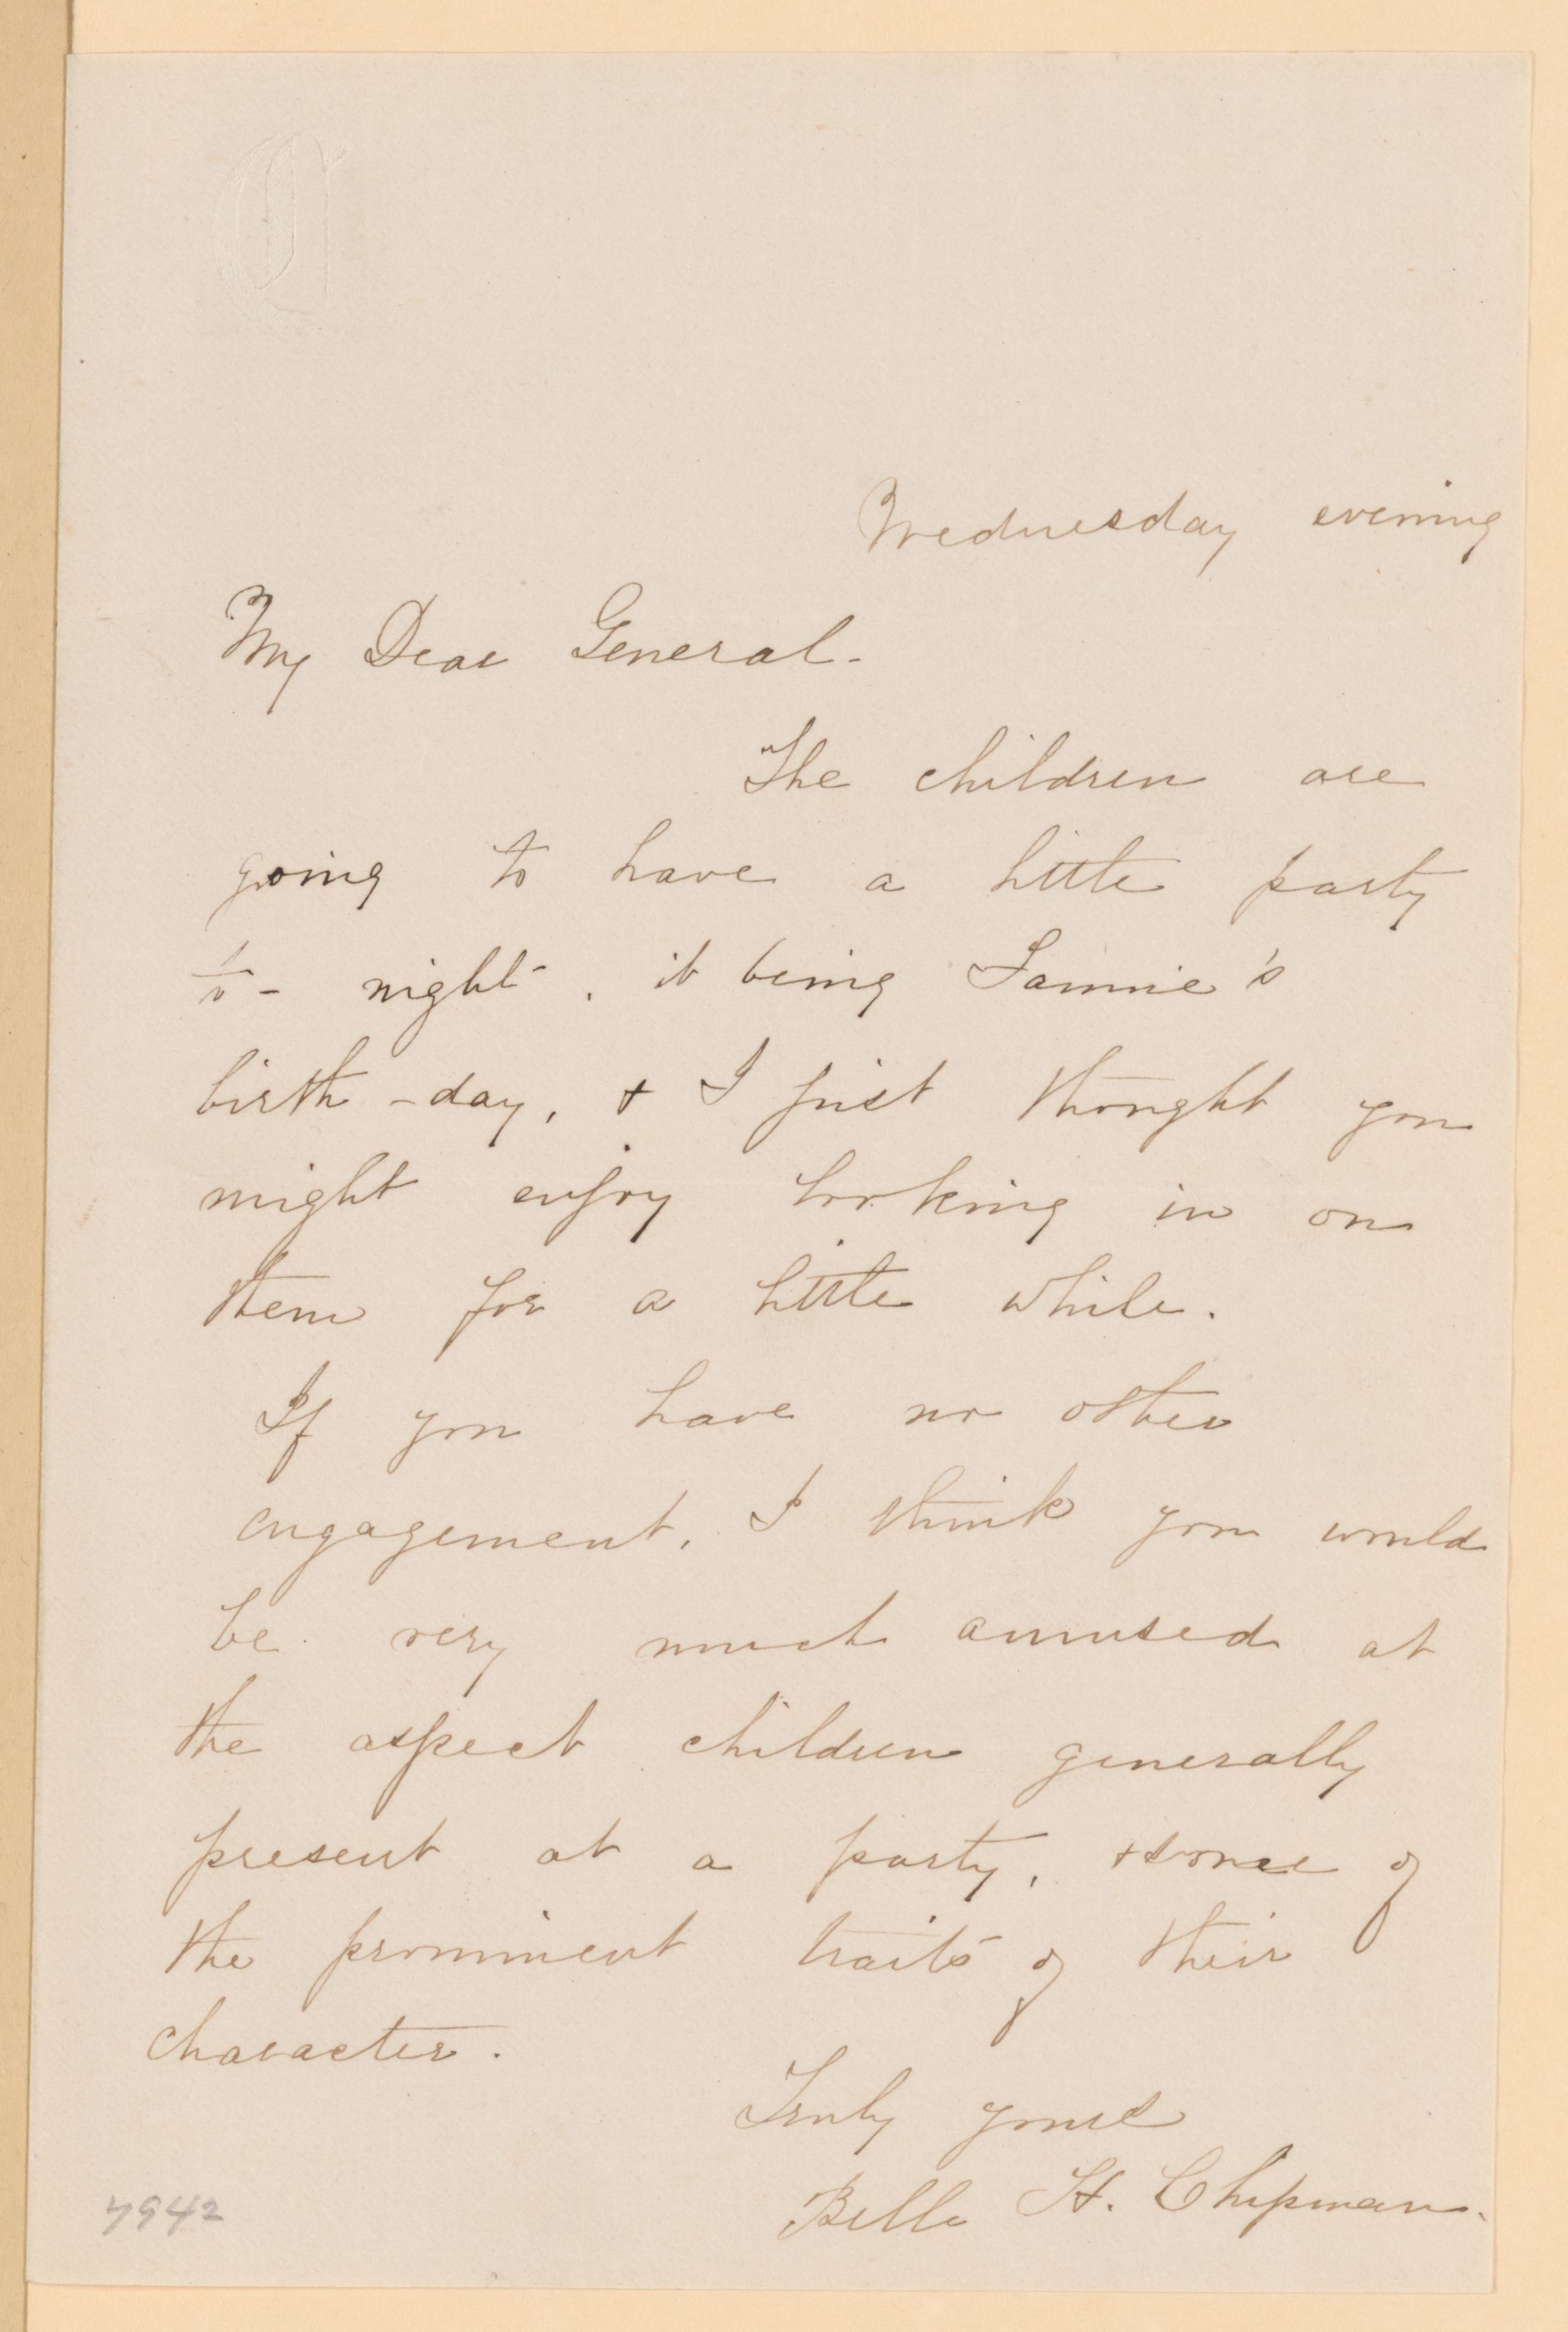 Wednesday evening
My Dear General-
The children are
going to have a little party
to-night, it being Fannie's
birth-day, & I just thought you
might enjoy looking in on
them for a little while.
If you have no other
engagement, I think you would
be very much amused at
the aspect children generally
present at a party, & some of
the prominent traits of their
character.
Truly yours
Belle H. Chipman.
7942